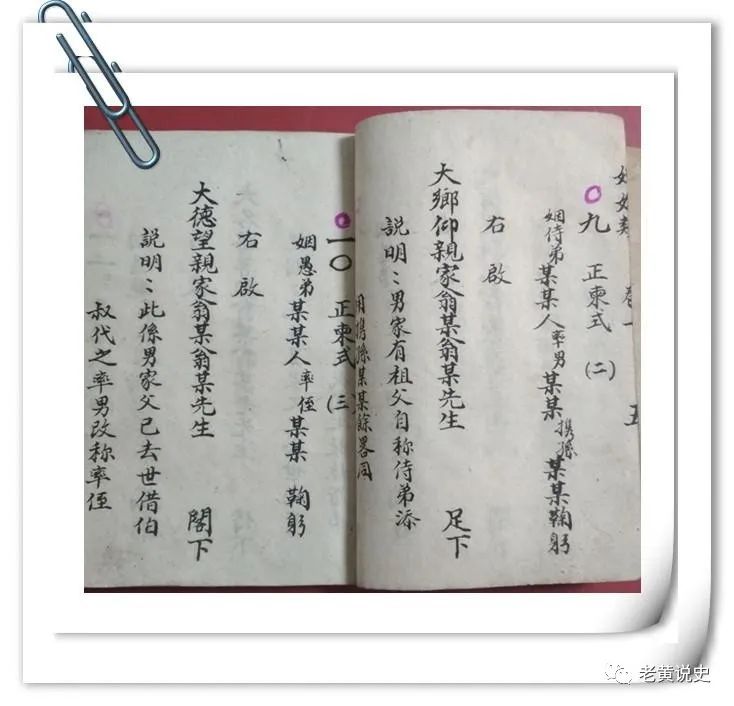 五
九 正柬式 (二)
姻侍弟某某人率男某某携孫某某鞠躬
右啟
大鄉仰親家翁某翁某先生 足下
説明：男家有祖父自称侍弟添
携孫某某餘畧同
一〇 正柬式 (三)
姻愚弟某某人率侄某某 鞠躬
右啟
大德望親家翁某翁某先生 閣下
説明：此係男家父已去世借伯
叔代之率男改称率侄
老黄说史